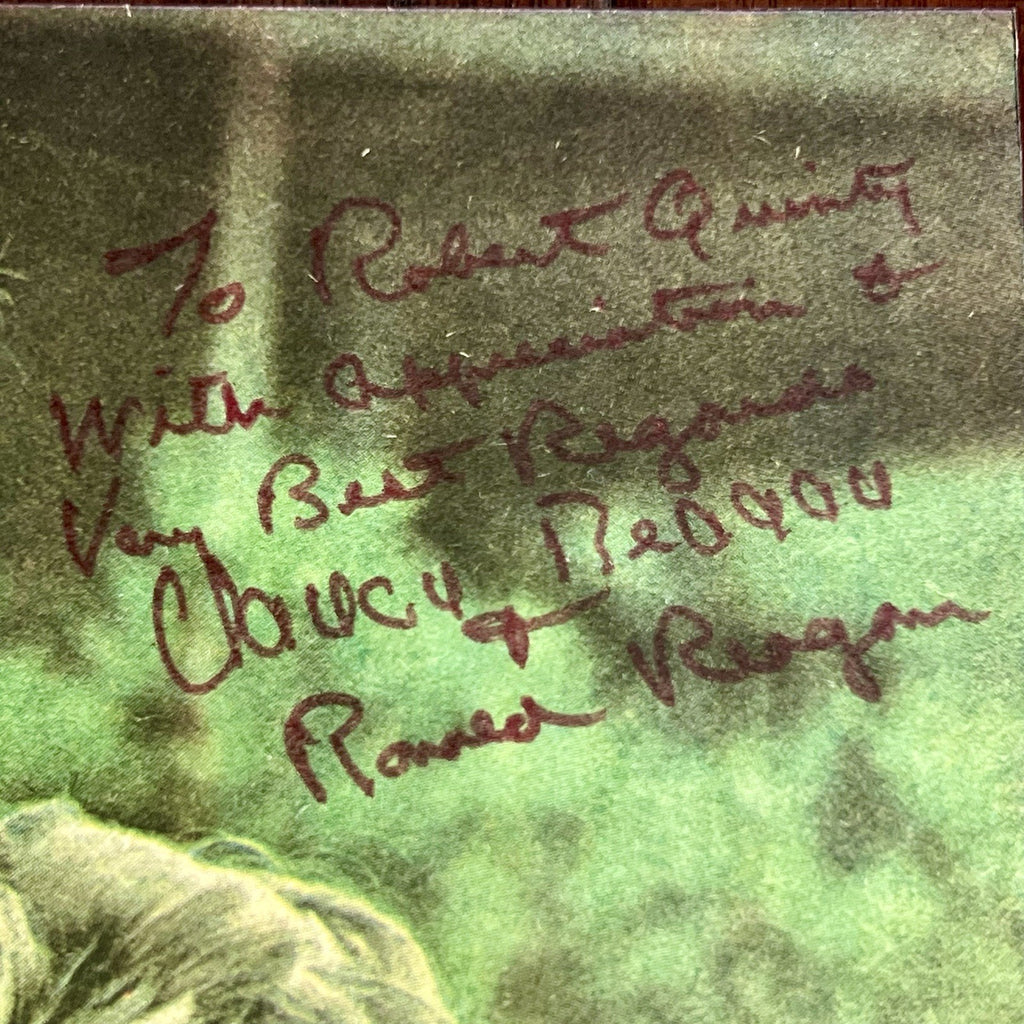 To Robert Quinty
With Appreciation &
Very Best Regards
Nancy Reagan
& Ronald Reagan